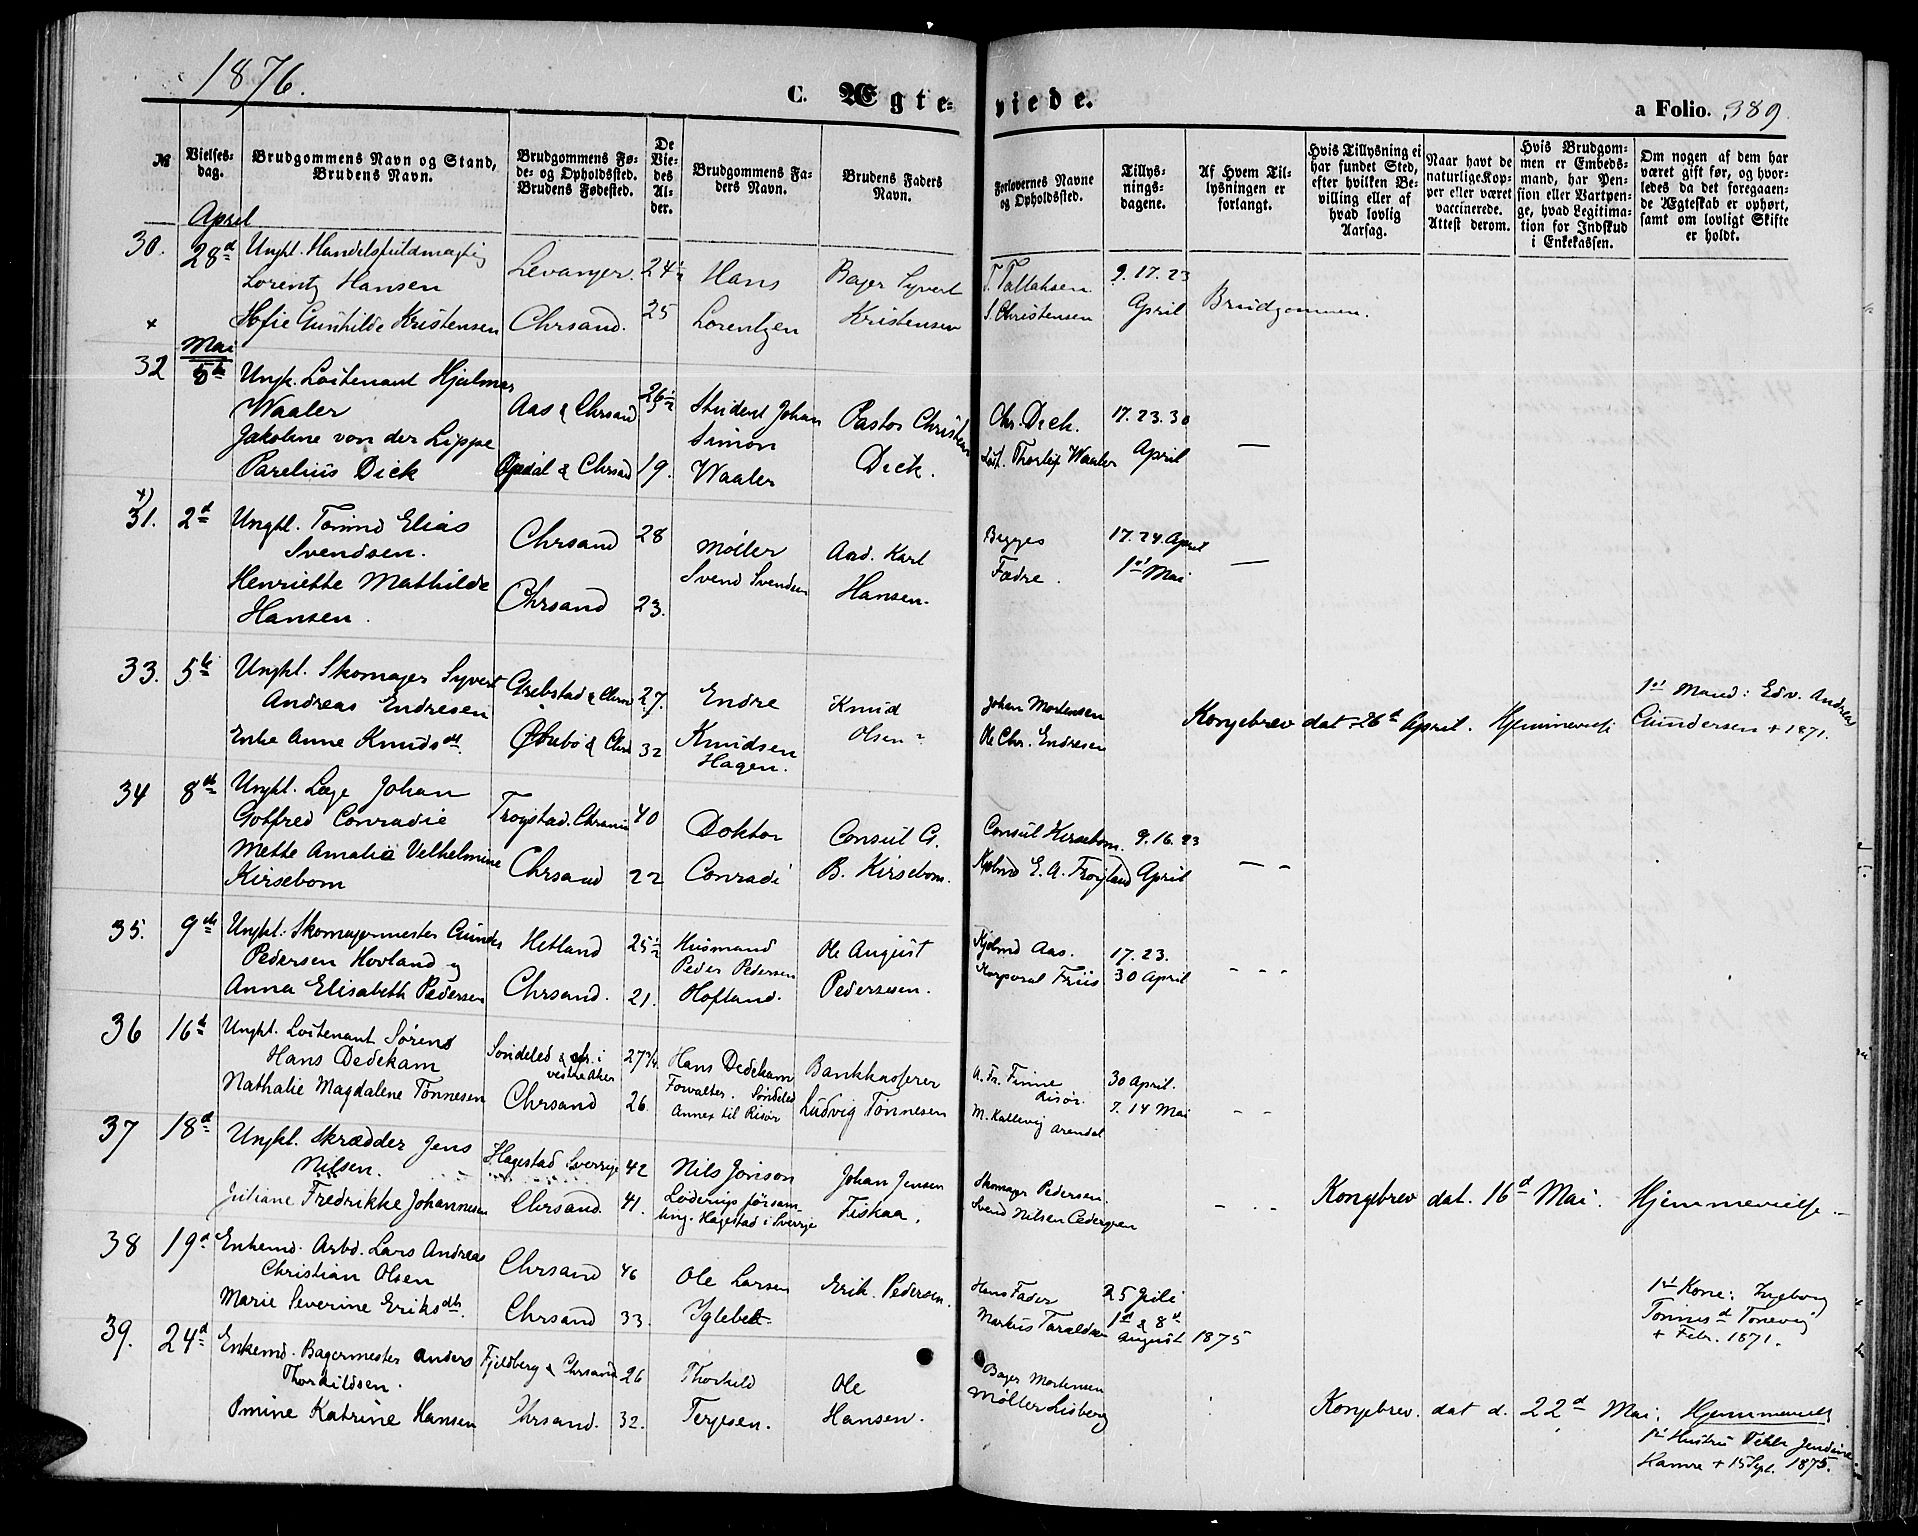 1876.
C. Ægte-
viede.
a Folio. 389
№
Vielses-
dag.
Brudgommens Navn og Stand,
Brudens Navn.
Brudgommens Fø-
de- og Opholdssted.
Brudens Fødested.
De
Vie-
des
Al-
der.
Brudgommens Fa-
ders Navn.
Brudens Faders
Navn.
Forlovernes Navne
og Opholdssted.
Tillys-
nings-
dagene.
Af Hvem Til-
lysningen er
forlangt.
Hvis Tillysning ei
har fundet Sted,
efter hvilken Be-
villing eller af
hvad lovlig
Aarsag.
Naar havt de
naturlige Kop-
per eller været
vaccinerede.
Attest derom.
Hvis Brudgom-
men er Embeds-
mand, har Pen-
sion eller Vartpen-
ge, hvad Legitima-
tion for Indskud
i Enkekassen.
Om nogen af dem har
været gift før, og hvor-
ledes da det foregaaen-
de Ægteskab er ophørt,
samt om lovligt Skifte
er holdt.
April
30. 28d Ungkl. Handelsfuldmægtig
Lorentz Hansen
Hofie Gunhilde Kristensen
Levanger. 24½
Chrsand. 25
Hans
Lorentzen
Bager Syvert
Kristensen
T. Tallaksen
S. Christensen
9. 17. 23
April
Brudgommen.
x
Mai
32 5te Ungk. Loitenant Hjalmar
Waaler
Jakobine von der Lippe
Parelius Dick
Aas & Chrsand 26½
Opdal & Chrsand 19.
Student Johan
Simon
Waaler
Pastor Christian
Dick.
Chr. Dick.
Loit. Thorleif Waaler
17. 23. 30
April
—
x)
31. 2d Ungkl. Tønnes Elias
Svendsen.
Henriette Mathilde
Hansen.
Chrsand 28
Chrsand 23.
Møller
Svend Svendsen
Arb. Karl
Hansen.
Begges
Fædre.
17. 24. April
1st Mai
—
33. 5te Ungkl. Skomager Syvert
Andreas Endresen
Enke Anne Knudsdt
Grebstad & Chrsand 27.
Øvrebø & Chrd 32
Endre
Knudsen
Hagen.
Knud
Olsen
Johan Mortensen
Ole Chr. Endresen
Kongebrev dat 26d April. Hjemmevielse
1st Mand: Edv. Andreas
Gundersen + 1871.
34 8de Ungkl. Læge Johan
Gotfred Conradie
Mette Amalie Vilhelmine
Kirsebom
Trøgstad. Chrania 40
Chrsand 22
Doktor
Conradi
Consul G.
B. Kirsebom.
Consul Kirsebom.
Kjøbmd E. A. Frøyland
9. 16. 23
April
— -
35. 9de Ungkl. Skomagermester Gunder
Pedersen Hovland og
Anna Elisabeth Pedersen
Hetland 25½
Chrsand. 21.
Husmand
Peder Pedersen
Hofland.
Ole August
Pedersen.
Kjøbmd Aas.
Korporal Friis
17. 23.
30 April
- - -
36 16d Ungkl. Loitenant Sørens
Hans Dedekam
Nathalie Magdalene Tønnesen
Søndeled & opr. i
vestre Aker 27¾
Chrsand 26.
Hans Dedekam
Forvalter. Søndeled
Annex til Risør
Bankkasserer
Ludvig Tønnesen
A. Fr. Finne
Risør.
M. Kallevig Arendal
30 April.
7. 14 Mai
- -
37 18d Ungkl. Skrædder Jens
Nilsen.
Juliane Fredrikke Johannesen
Hagestad Sverrige 42
Chrsand. 41.
Nils Jönson
Löderups försam-
ling. Hagestad i Sverrige
Johan Jensen
Fiskaa.
Skomager Pedersen.
Svend Nilsen Cedergren
- - -
Kongebrev dat. 16d Mai. Hjemmevielse.
38 19d Enkemd. Arbd. Lars Andreas
Christian Olsen
Marie Severine Eriksdt.
Chrsand 46
Chrsand 33.
Ole Larsen
Iglebæk.
Erik Pedersen.
Hans Fader
Markus Taraldsen
25 Juli
1st & 8d
August 1875
1st Kone: Ingeborg
Tønnesd Tonevig
+ Febr. 1871.
39. 24d Enkemd. Bagermester Anders
Thorkildsen.
Omine Katrine Hansen
Fjeldberg & Chrsand 26
Chrsand. 32.
Thorkild
Terjesen.
Ole
Hansen.
Bager Mortensen
Møller Lisberg
Kongebrev. dat d. 22d Mai. Hjemmevielse
1st Hustru Jendine
+ 15 Sept. 1875.